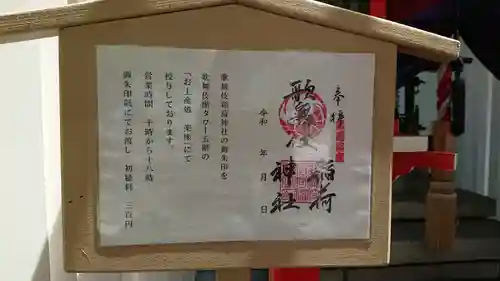 奉拝
歌舞伎
稲荷
神社
令和　年　月　日
歌舞伎稲荷神社の御朱印を
歌舞伎座タワー五階の
「お土産処 楽座」にて
授与しております。
営業時間　十時から十八時
御朱印紙にてお渡し　初穂料　三百円